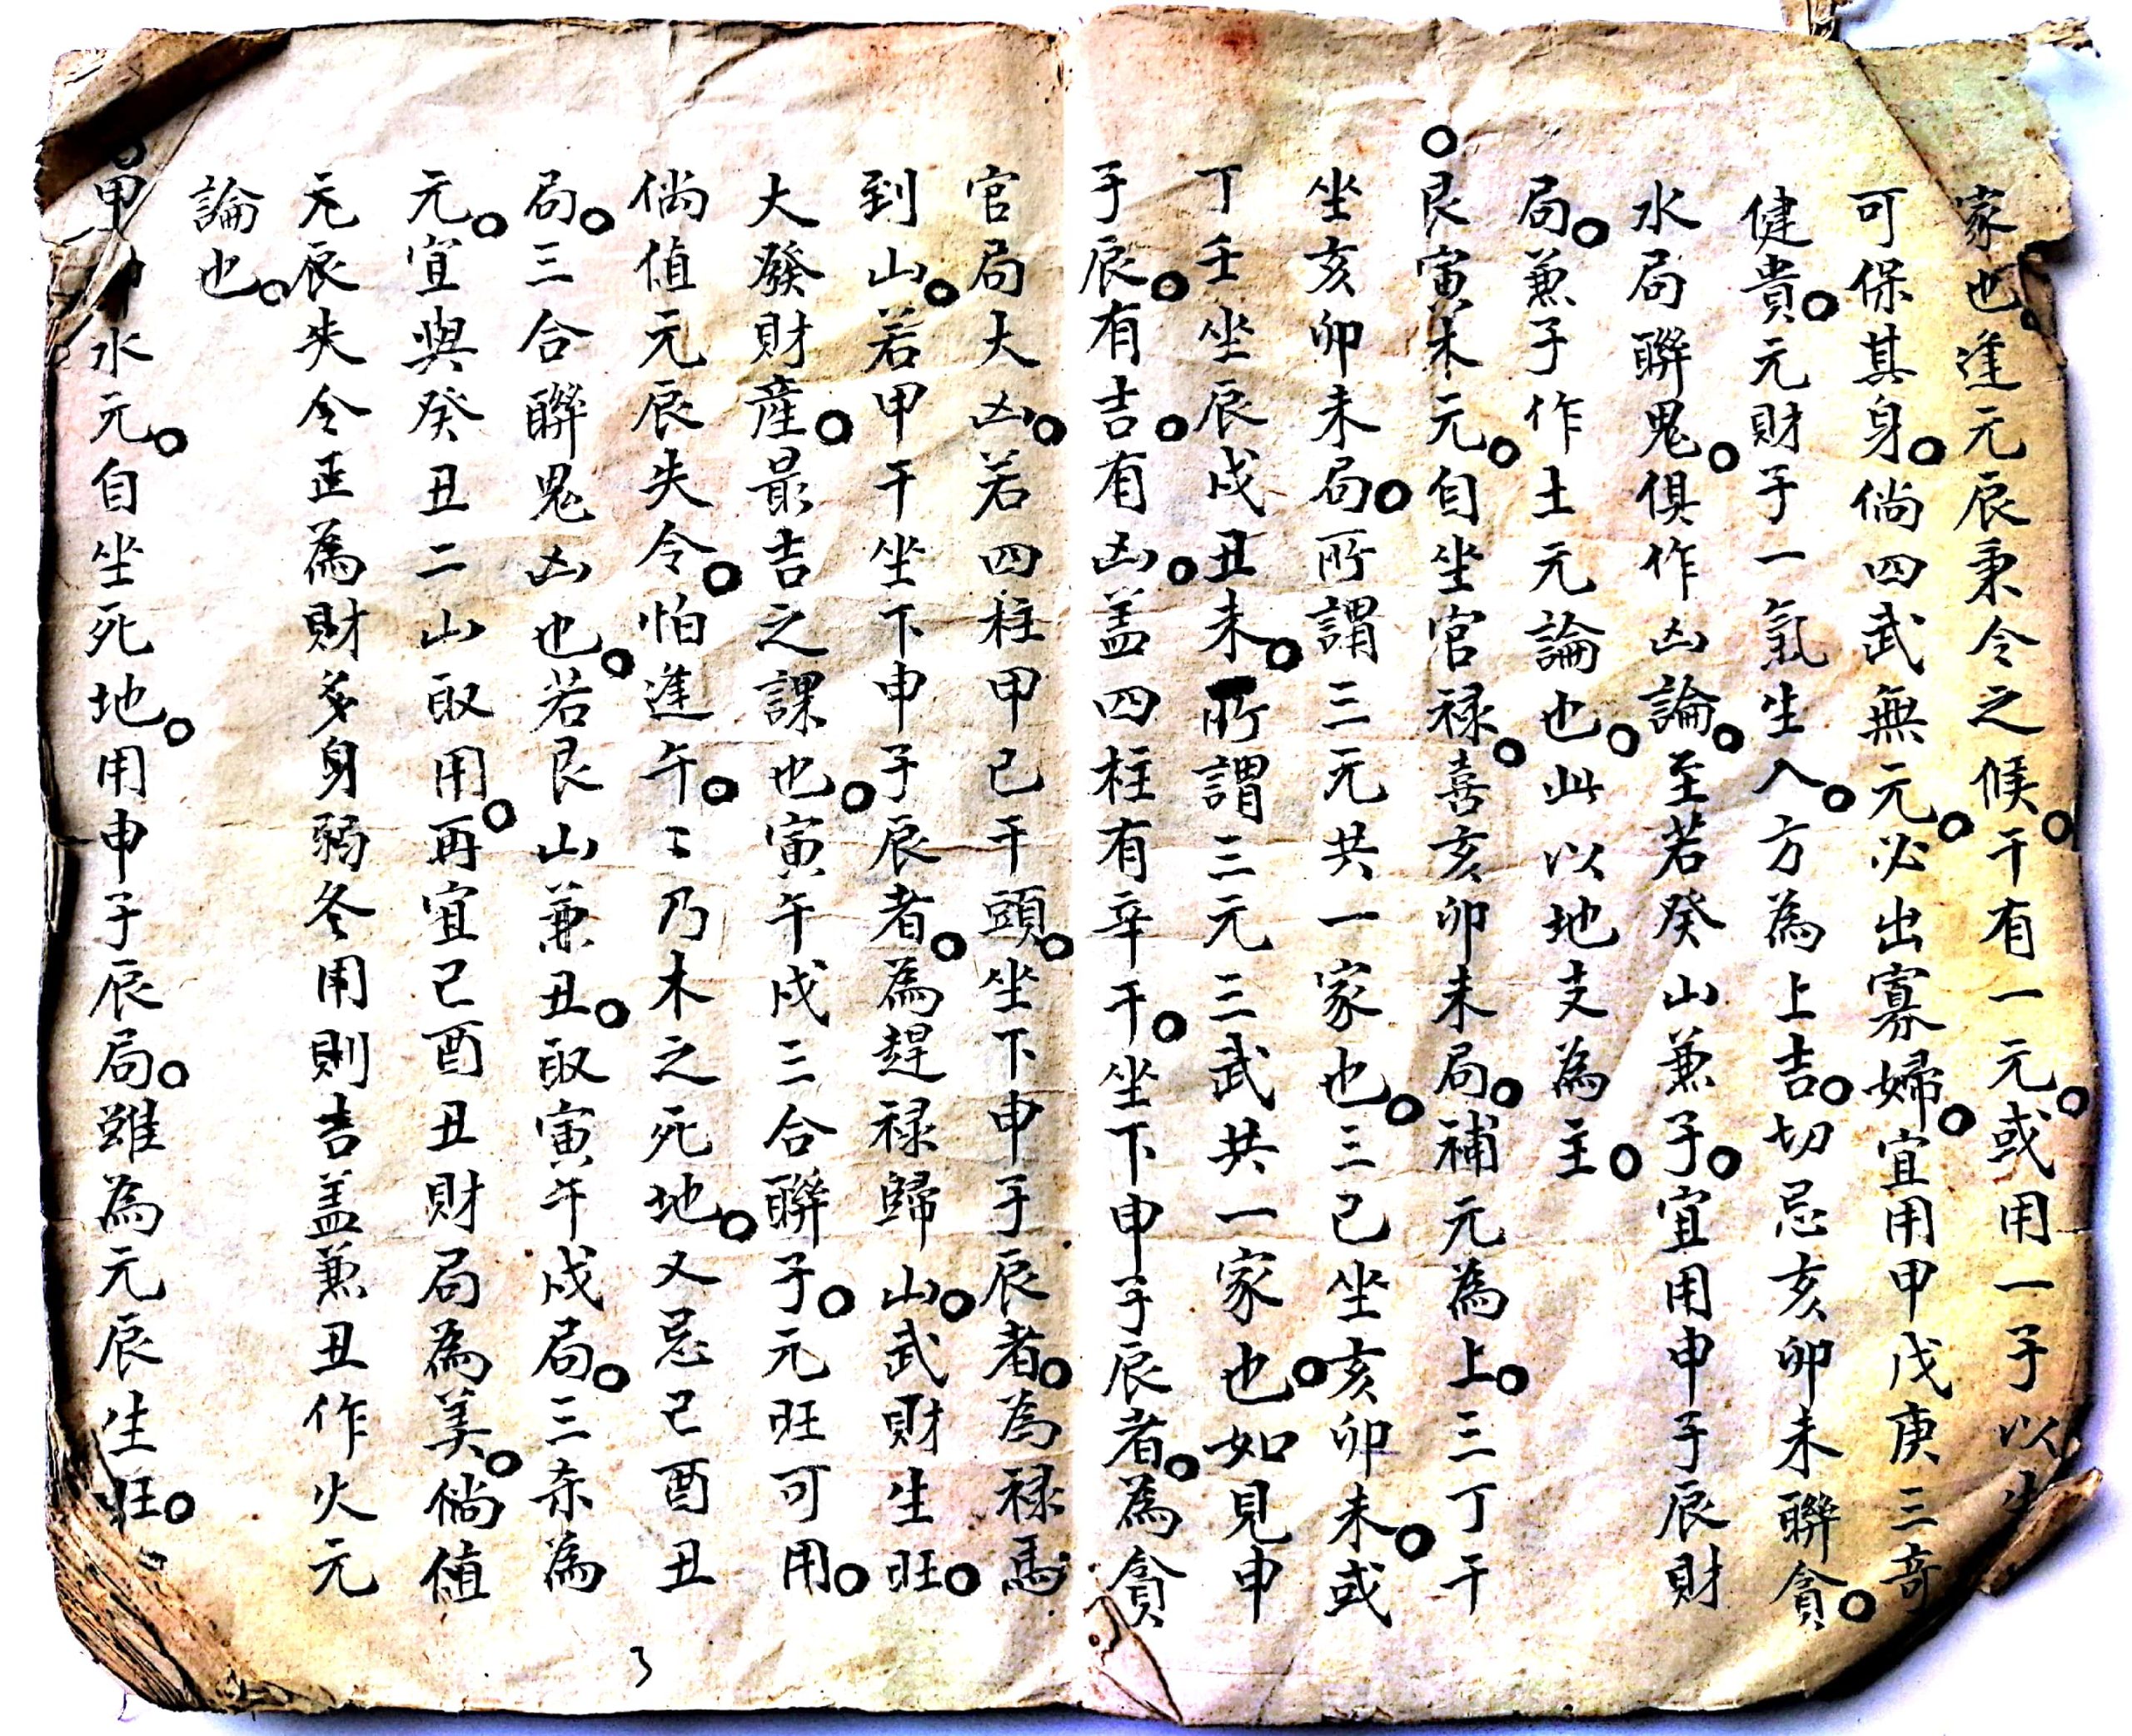 家也。逢元辰秉令之候。干有一元。或用一子以生
可保其身。倘四武無元。必出寡婦。宜用甲戊庚三奇
健貴。元財子一氣生入。方為上吉。切忌亥卯未聯貪。
水局聯鬼。俱作凶論。至若癸山兼子。宜用申子辰財
局。兼子作土元論也。此以地支為主。
。艮寅木元。自坐官禄。喜亥卯未局。補元為上。三丁干
坐亥卯未局。所謂三元共一家也。三己坐亥卯未。或
丁壬坐辰戌丑未。所謂三元三武共一家也。如見申
子辰。有吉。有凶。盖四柱有辛干。坐下申子辰者。為貪
官局大凶。若四柱甲己干頭。坐下申子辰者。為禄馬
到山。若甲干坐下申子辰者。為趕禄歸山。武財生旺。
大發財産。最吉之課也。寅午戌三合聯子。元旺可用。
倘值元辰失令。怕逢午。〻乃木之死地。又忌己酉丑
局。三合聯鬼凶也。若艮山兼丑。取寅午戌局。三奈為
元。宜與癸丑二山取用。再宜己酉丑財局為美。倘值
元辰失令正為財多身弱冬用則吉盖兼丑作火元
論也。
。甲卯水元。自坐死地。用申子辰局。雖為元辰生旺。
3